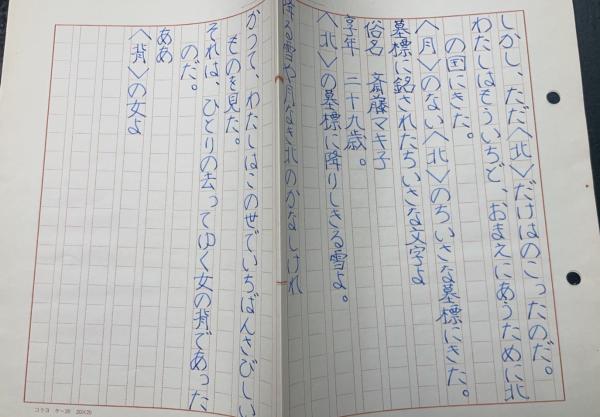 しかし、ただ〈北〉だけはのこったのだ。
わたしはもういちど、おまえにあうために北
の国にきた。
〈月〉のない〈北〉のちいさな墓標にきた。
墓標に銘されたちいさな文字よ
俗名 斎藤マキ子
享年 二十九歳。
〈北〉の墓標に降りしきる雪よ。
降る雪や月なき北のかなしけれ
かつて、わたしはこのせでいちばんさびしい
ものを見た。
それは、ひとりの去ってゆく女の背であった
のだ。
ああ
〈背〉の女よ
コクヨ ケ-10 20×20